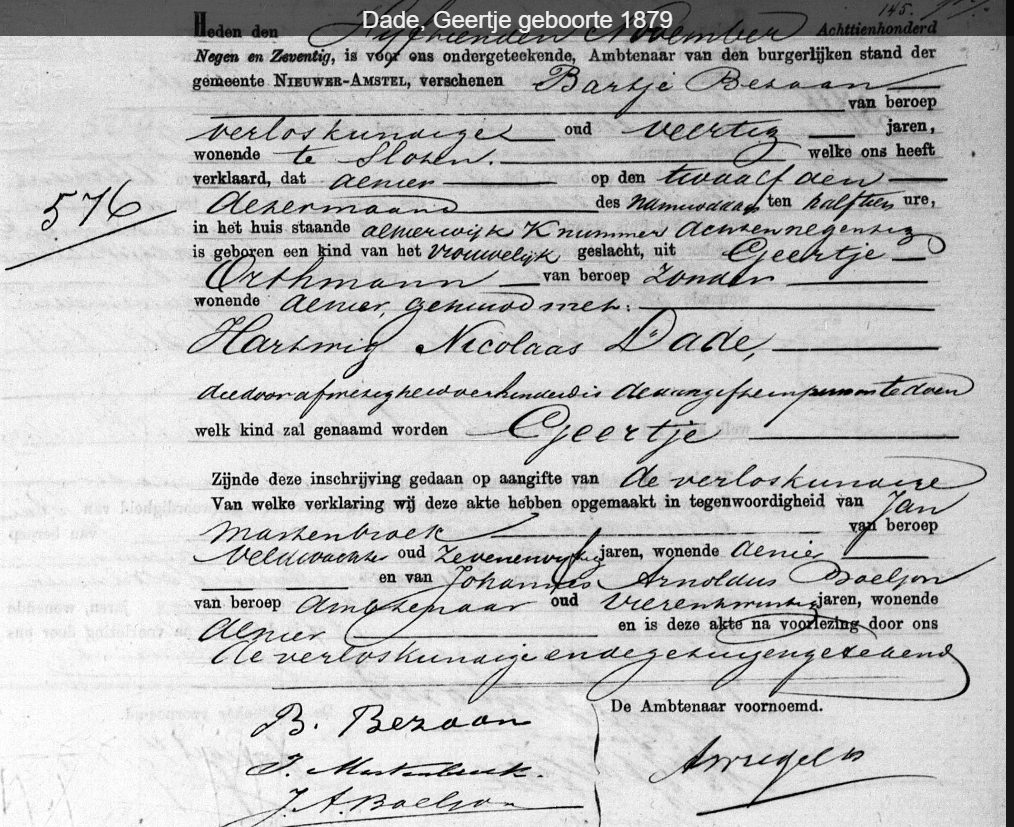 Dade, Geertje geboorte 1879
145.
Heden den Vijftienden November Achttienhonderd
Negen en Zeventig, is voor ons ondergeteekende, Ambtenaar van den burgerlijken stand der
gemeente NIEUWER-AMSTEL, verschenen Bartje Bezaan
van beroep
verloskundige oud veertig jaren,
wonende te Sloten. welke ons heeft
verklaard, dat alhier op den twaalfden
dezer maand des namiddags ten half tien ure,
576
in het huis staande alhier wijk K nummer achtennegentig
is geboren een kind van het vrouwelijk geslacht, uit Geertje
Orthmann van beroep zonder
wonende alhier, gehuwd met:
Hartwig Nicolaas Dade,
die door afwezigheid verhinderd is de aangifte in persoon te doen
welk kind zal genaamd worden Geertje
Zijnde deze inschrijving gedaan op aangifte van de verloskundige
Van welke verklaring wij deze akte hebben opgemaakt in tegenwoordigheid van Jan
Mastenbroek van beroep
Veldwachter oud zevenenvijftig jaren, wonende alhier
en van Johannes Arnoldus Boelson
van beroep Ambtenaar oud vierentwintig jaren, wonende
alhier en is deze akte na voorlezing door ons
de verloskundige en de getuigen geteekend
De Ambtenaar voornoemd.
B. Bezaan
J. Mastenbroek.
J. A. Boelson